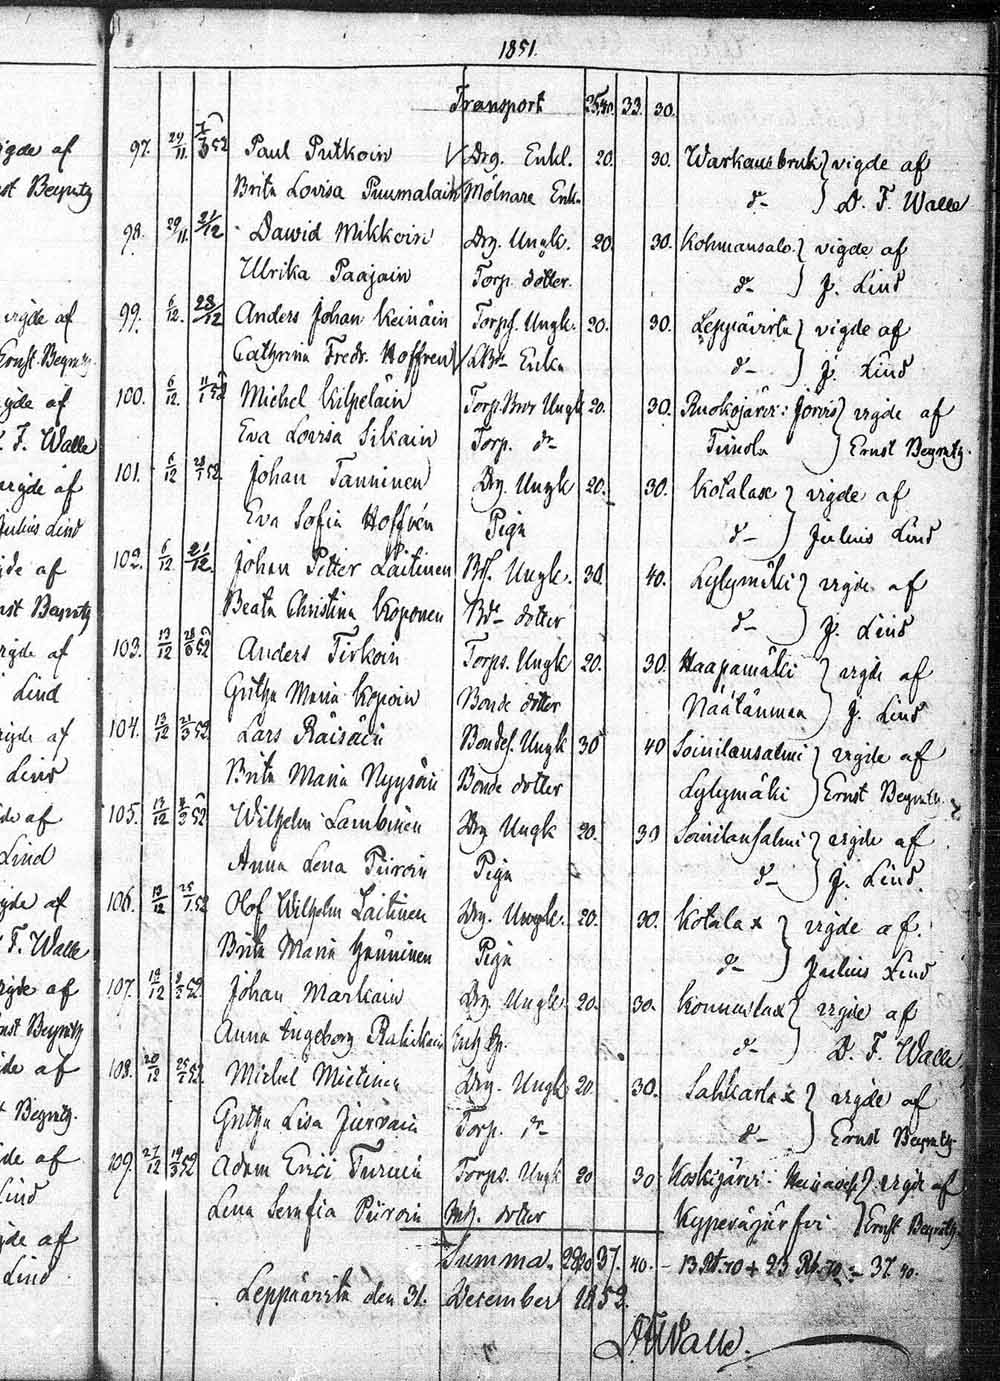 1851.
Transport 25,40. 33. 30.
igde af 97. 29/11. 7/3 52 Paul Putkoin Drg. Enkl. 20. 30. Warkausbruk } vigde af
st Beyrntz Brita Lovisa Puumalain Mölnare Enk. d- } D. F. Walle
98. 29/11. 21/12 Dawid Mikkoin Drg. Ungk. 20. 30. Kohmansalo. } vigde af
Ulrika Paajain Torp. dotter. d- } J. Lind
vigde af 99. 6/12. 28/12 Anders Johan Keinäin Torps. Ungk. 20. 30. Leppävirta } vigde af
Ernst Beyrntz Cathrina Fredr. Hoffren Enka d- } J. Lind
igde af 100. 6/12. 11/1 52 Michel Kilpeläin Torp. Ungk 20. 30. Ruokojärvi: Jorois } vigde af
F. Walle Eva Lovisa Silkain Torp. dr Timola } Ernst Beyrntz
vigde af 101. 6/12 28/1 52. Johan Tanninen Drg. Ungk 20. 30. Kotalax } vigde af
Julius Lind Eva Sofia Hoffrén Piga d- } Julius Lind
gde af 102. 6/12. 21/12. Johan Petter Laitinen Bds. Ungk. 30. 40. Lylymäki } vigde af
nst Beyrntz Beata Christina Koponen Bde dotter d- } J. Lind
vigde af 103. 13/12 28/3 52 Anders Tirkoin Torps. Ungk 20. 30. Haapamäki } vigde af
Lind Gretha Maria Kopoin Bonde dotter Näätänmaa } J. Lind
vigde af 104. 13/12 21/3 52. Lars Räisäin Bondes. Ungk 30 40 Soinilansalmi } vigde af
Lind Brita Maria Nyyssöin Bonde dotter Lylymäki } Ernst Beyrntz.
de af 105. 13/12 52 Wilhelm Lambinen Drg Ungk 20. 30 Soinilansalmi } vigde af
Lind Anna Lena Piiroin Piga d- } J. Lind.
gde af 106. 13/12 25/1 52 Olof Wilhelm Laitinen Drg. Ungk. 20. 30. Kotalax } vigde af.
F. Walle Brita Maria Hänninen Piga d- } Julius Lind
vigde af 107. 19/12 8/2 52. Johan Markain Drg Ungk. 20. 30. Konnuslax } vigde af
nst Beyrntz Anna Ingeborg Rahikain d- } D. F. Walle
de af 108. 20/12 25/1 52. Michel Miettinen Drg. Ungk 20. 30. Sahkarlax } vigde af
Beyrntz. Gretha Lisa Jurvain Torp. dr d- } Ernst Beyrntz
de af 109. 27/12 19/3 52 Adam Erici Turuin Torps. Ungk 20 30 Koskijärvi - } vigde af
Lind Lena Serafia Piiroin dotter } Ernst Beyrntz
de af Summa. 28 20 37. 40. - 13 Rb. 70 + 23 Rb. 70 = 37. 40.
Lind. Leppävirta den 31. December 1852.
D F Walle.